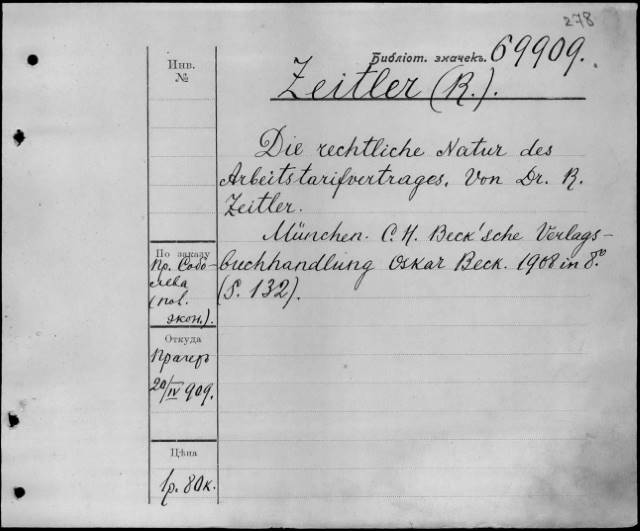 278
Библіот. значекъ. 69909.
Zeitler (R.).
Инв.
№
Die rechtliche Natur des
Arbeitstarifvertrages. Von Dr. R.
Zeitler.
München. C. H. Beck'sche Verlags-
buchhandlung Oskar Beck. 1908 in 8°
(S. 132).
По заказу
Пр. Собо-
лева
(пол.
экон.).
Откуда
Прагеръ
20/IV 909.
Цѣна
1р. 80к.